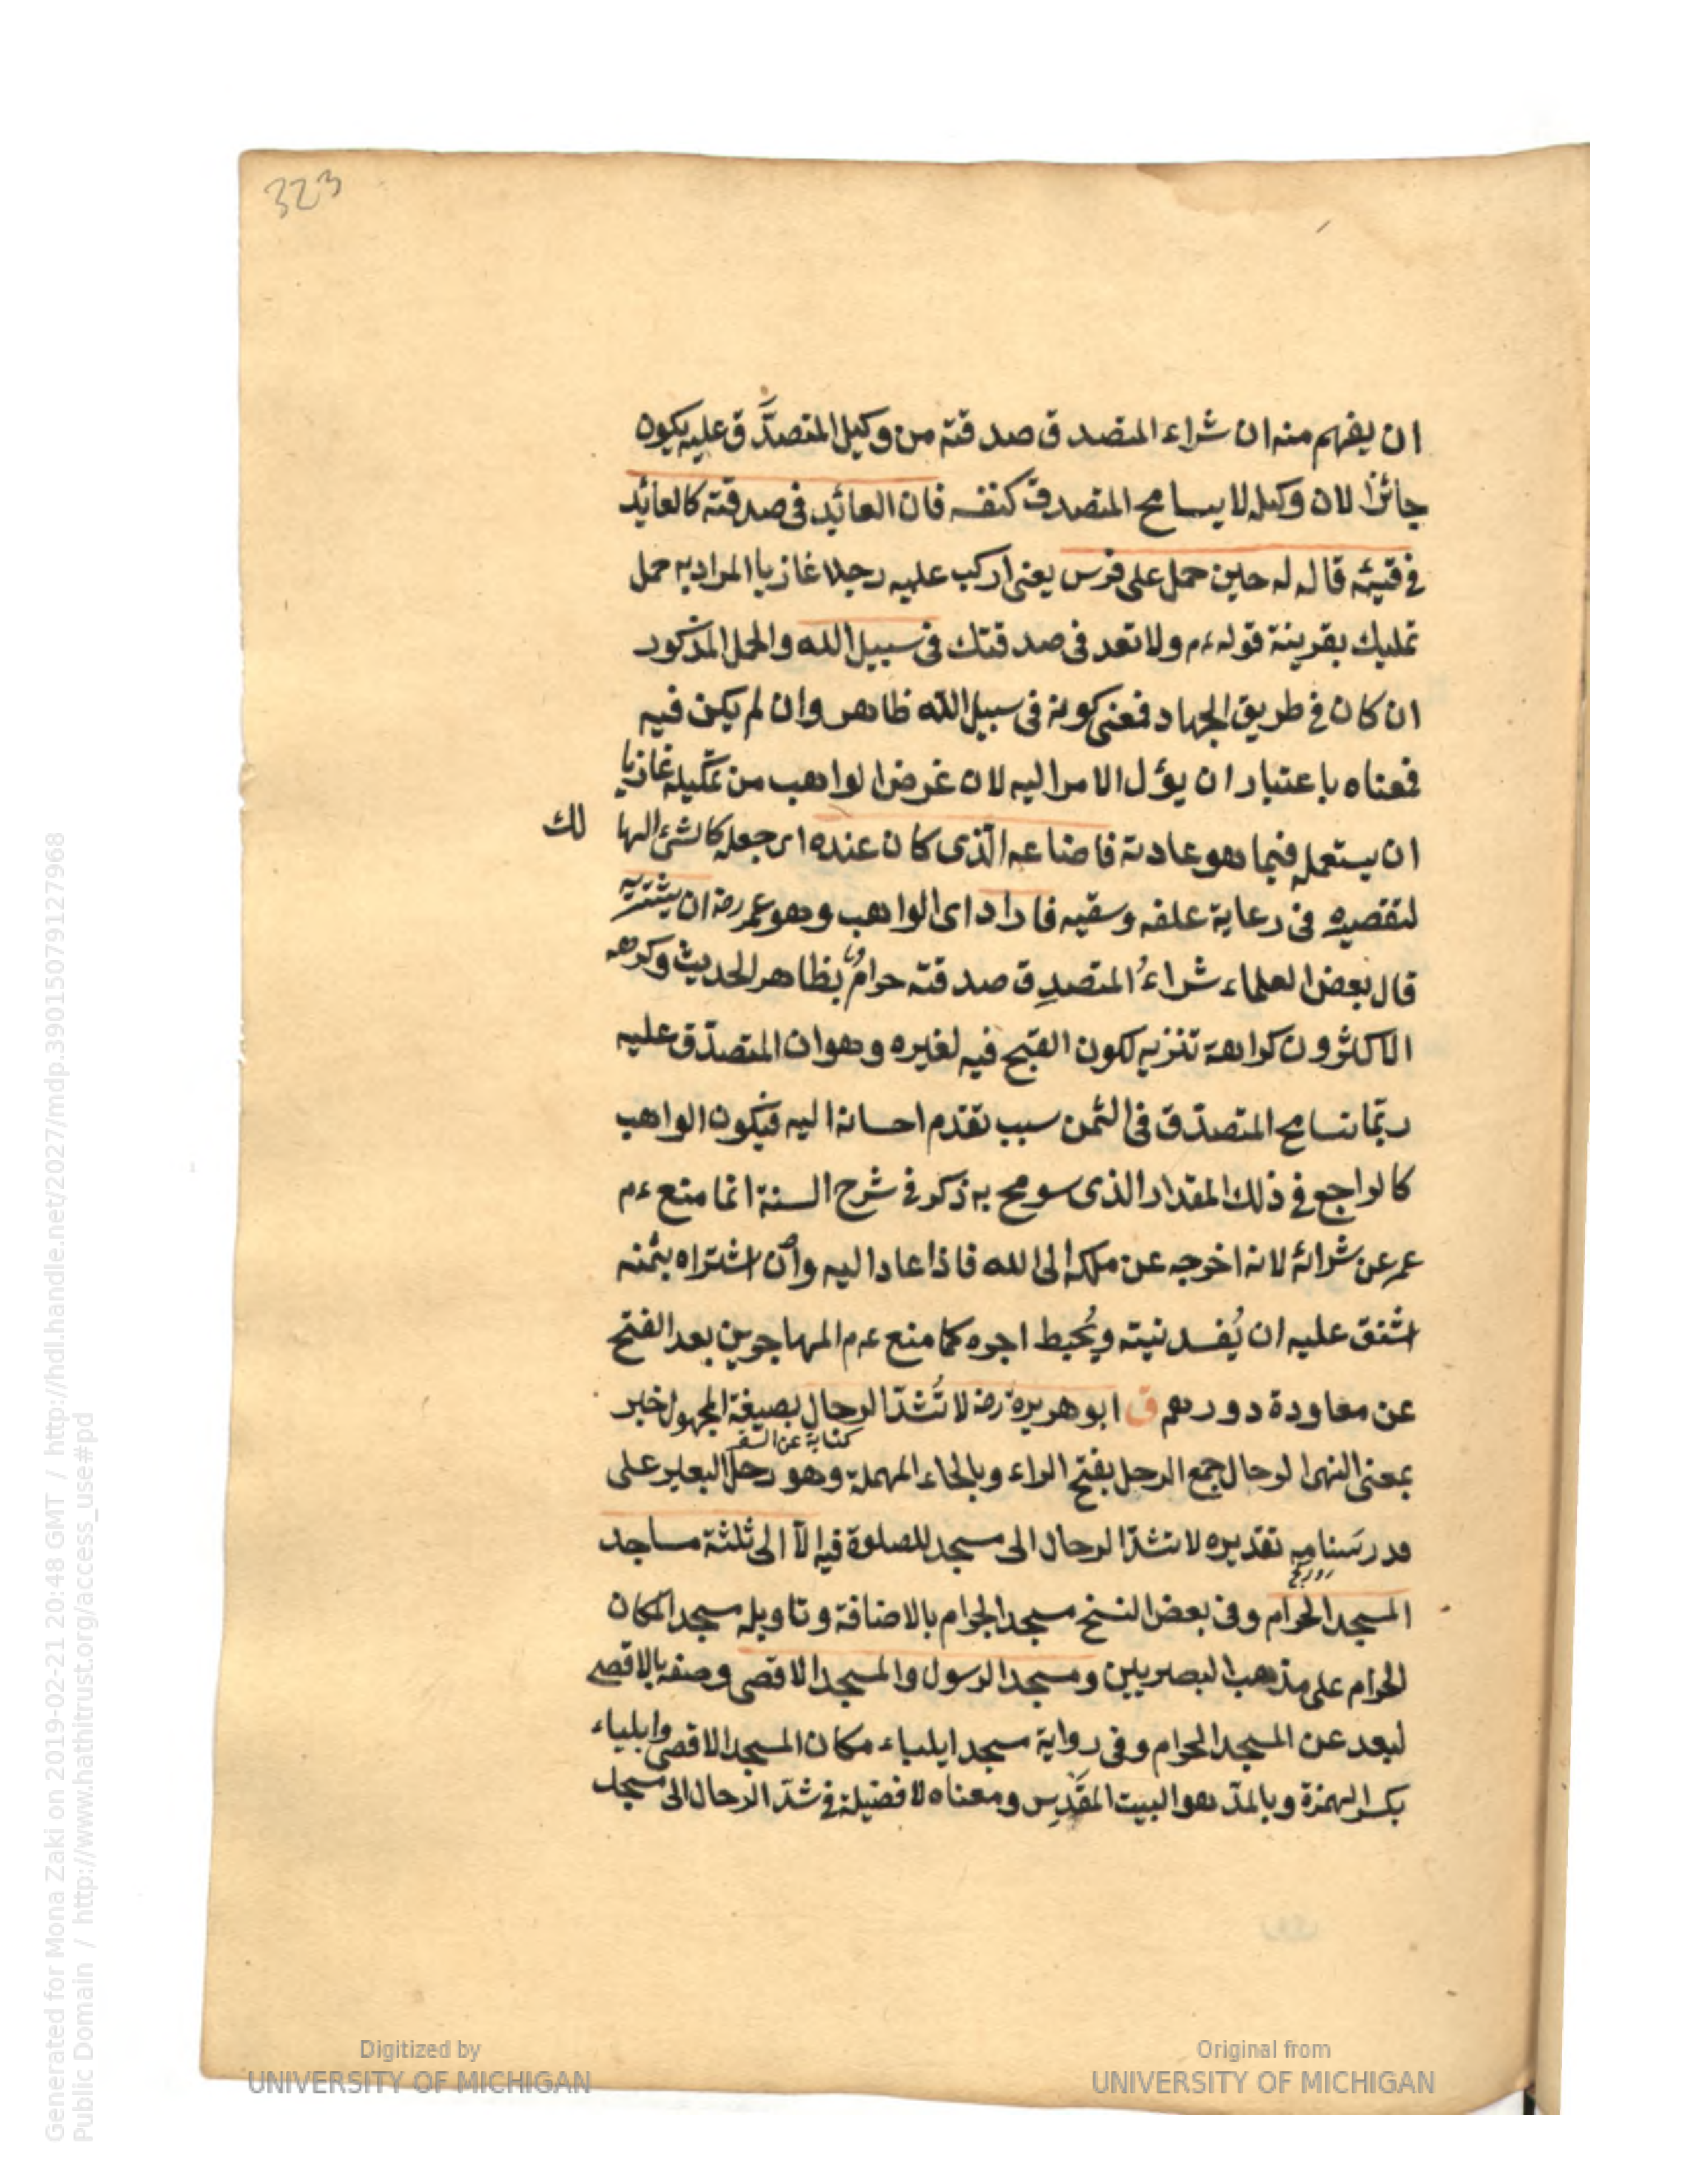 323
ان يفهم منه ان شراء المتصدق صدقته من وكيل المتصدَّق عليه يكون
جائزا لان وكيله لا يسامح المتصدق كنفسه فان العائد فى صدقته كالعائد
فى قيئه قاله له حين حمل على فرس يعنى اركب عليه رجلا غازيا المراد به حمل
تمليك بقرينة قوله ءم ولا تعد فى صدقتك فى سبيل الله والحمل المذكور
ان كان فى طريق الجهاد فمعنى كونه فى سبيل الله ظاهر وان لم يكن فيه
فمعناه باعتبار ان يؤل الامر اليه لان غرض الواهب من تمليكه غازيا
ان يستعمله فيما هو عادته فاضاعه الّذى كان عنده اى جعله كالشئ الها
لك
لتقصيره فى رعاية علفه وسقيه فاراد اى الواهب وهو عمر رضه ان يشتريه
قال بعض العلماء شراءُ المتصدِق صدقته حرامٌ بظاهر الحديث وكرهه
الاكثرون كراهة تنزيه لكون القبح فيه لغيره وهو ان المتصدّق عليه
ربّما يتسامح المتصدّق فى الثّمن سبب تقدّم احسانه اليه فيكون الواهب
كالراجع فى ذلك المقدار الذى سومح به ذكر فى شرح السنة انما منع ءم
عمر عن شرائه لانه اخرجه عن ملكه الى الله فاذا عاد اليه وان اشتراه بثمنه
اشفق عليه ان يُفسد نيته ويُحبط اجره كما منع عم المهاجرين بعد الفتح
عن معاودة دورهم ق ابو هريرة رضه لا تُشَدّ الرحال بصيغة المجهول خبر
كناية عن السفر
بمعنى النهى الرحال جمع الرحل بفتح الراء وبالحاء المهملة وهو رحل البعير على
قدر سَنامه تقديره لا تشدّ الرحال الى مسجد للصلوة فيه الّا الى ثلثة مساجد
المسجد الحرام وفى بعض النسخ مسجد الحرام بالاضافة وتاويله مسجد المكان
الحرام على مذهب البصريين ومسجد الرسول والمسجد الاقصى وصفه بالاقصى
لبعد عن المسجد الحرام وفى رواية مسجد ايلياء مكان المسجد الاقصى وايلياء
بكسر الهمزة وبالمدّ هو البيت المقَدِس ومعناه لا فضيلة فى شدّ الرحال الى مسجد
Digitized by
UNIVERSITY OF MICHIGAN
Original from
UNIVERSITY OF MICHIGAN
Generated for Mona Zaki on 2019-02-21 20:48 GMT / http://hdl.handle.net/2027/mdp.39015079127968
Public Domain / http://www.hathitrust.org/access_use#pd